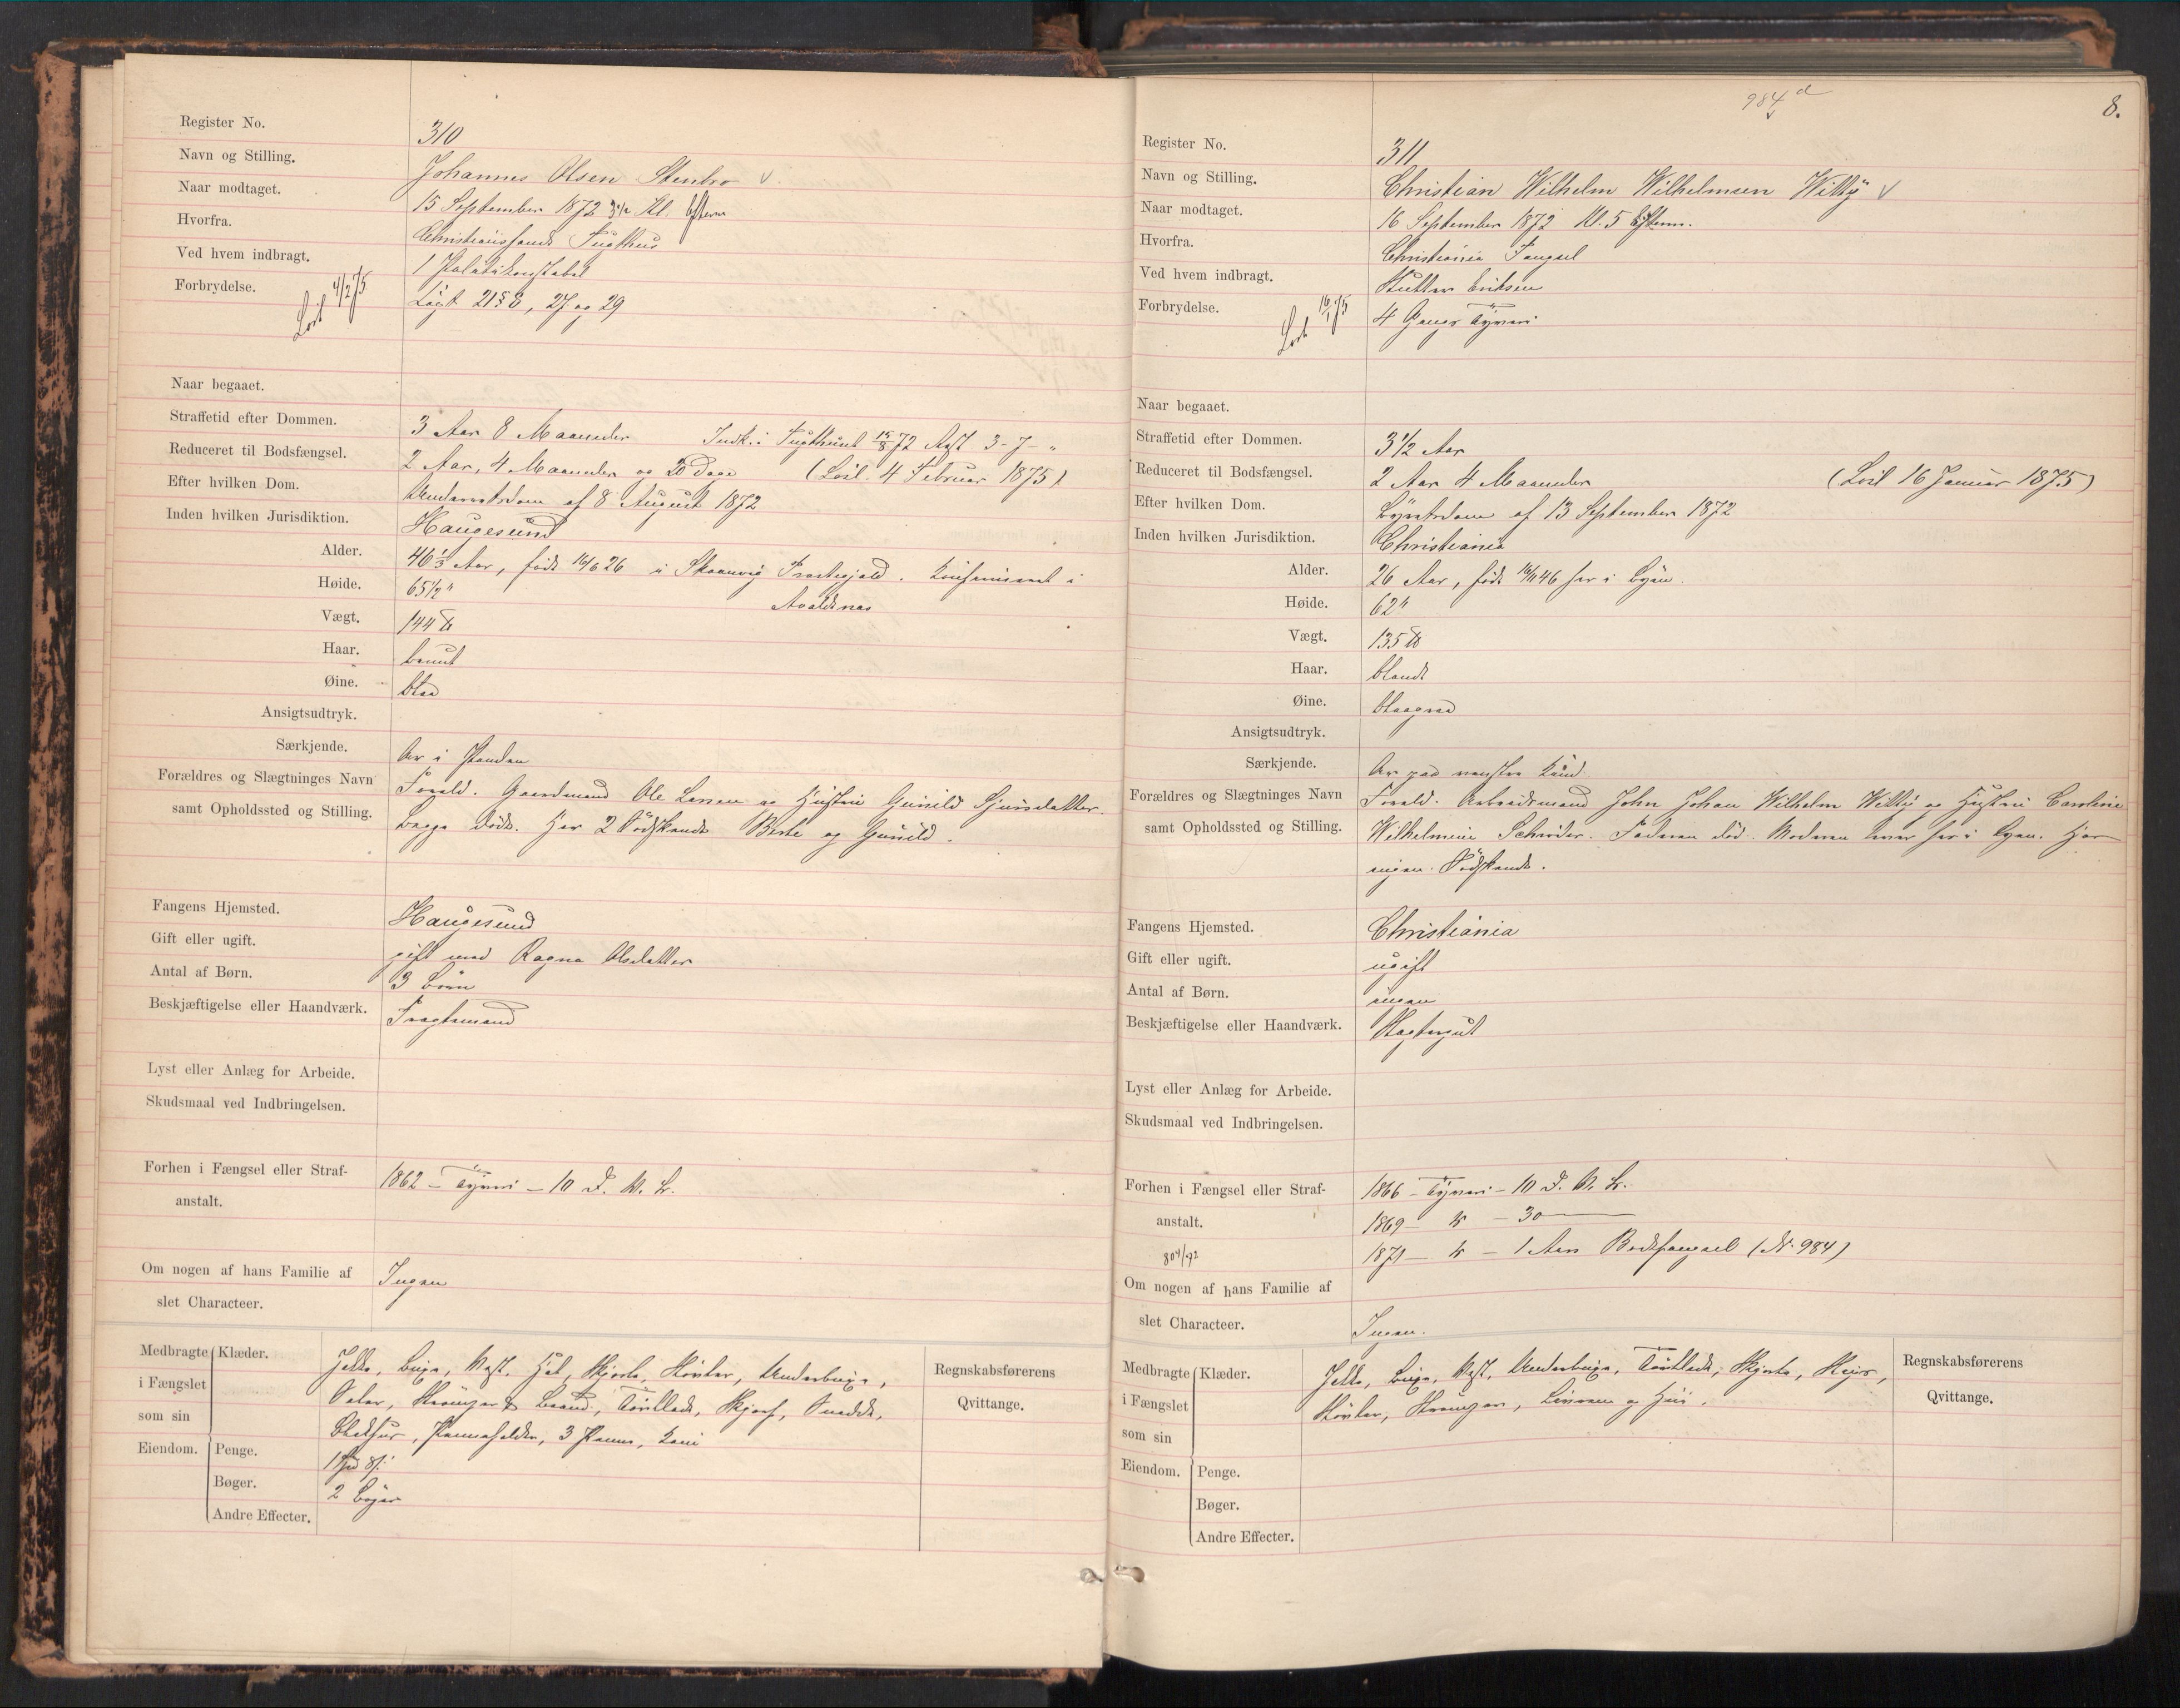 Register No. 310
Navn og Stilling. Johannes Olsen Stenbro
Naar modtaget. 15 September 1872 3 1/2 Kl. Efterm
Hvorfra. Christianssands Tugthus
Ved hvem indbragt. 1 Politikonstabel
Forbrydelse. Løsl 4/2 75 Cap 21 § 8, 27 og 29
Naar begaaet.
Straffetid efter Dommen. 3 Aar 8 Maaneder Indk. i Tugthuset 15/8 72 Rest 3-7-"
Reduceret til Bodsfængsel. 2 Aar, 4 Maaneder og 20 Dage (Løsl. 4 Februar 1875)
Efter hvilken Dom. Underretsdom af 8 August 1872
Inden hvilken Jurisdiktion. Haugesund
Alder. 46 1/3 Aar, født 16/6 26 i Skaanevig Præstegjeld. Konfirmeret i
Avaldsnæs
Høide. 65 1/2"
Vægt. 144 ℔
Haar. brunt
Øine. blaa
Ansigtsudtryk.
Særkjende. Ar i Panden
Forældres og Slægtninges Navn Foræld. Gaardmand Ole Larsen og Hustru Gunild Sjursdatter.
samt Opholdssted og Stilling. Begge døde. Har 2 Sødskende Berte og Gunild.
Fangens Hjemsted. Haugesund
Gift eller ugift. gift med Ragna Olsdatter
Antal af Børn. 3 Børn
Beskjæftigelse eller Haandværk. Fragtemand
Lyst eller Anlæg for Arbeide.
Skudsmaal ved Indbringelsen.
Forhen i Fængsel eller Straf- 1862 – Tyveri – 10 D. V. B.
anstalt.
Om nogen af hans Familie af Ingen
slet Characteer.
Medbragte Klæder. Jakke, Buxe, Vest, Hat, Skjorte, Støvler, Underbuxe,
i Fængslet Seler, Strømper & Baand, Tørklæde, Skjerf,
som sin Blækhus, Penneholder, 3 Penne, Kam
Regnskabsførerens
Qvittange.
Eiendom. Penge. 1 Spd 8 s.
Bøger. 2 Bøger
Andre Effecter.
984 d
8.
Register No. 311
Navn og Stilling. Christian Wilhelm Wilhelmsen Wittig
Naar modtaget. 16 September 1872 Kl. 5 Efterm.
Hvorfra. Christiania Fængsel
Ved hvem indbragt. Slutter Eriksen
Forbrydelse. Løsl 16/1 75 4 Gange Tyveri
Naar begaaet.
Straffetid efter Dommen. 3 1/2 Aar
Reduceret til Bodsfængsel. 2 Aar 4 Maaneder (Løsl 16 Januar 1875)
Efter hvilken Dom. Byretsdom af 13 September 1872
Inden hvilken Jurisdiktion. Christiania
Alder. 26 Aar, født 16/11 46 her i Byen.
Høide. 62"
Vægt. 135 ℔
Haar. blondt
Øine. blaagraa
Ansigtsudtryk.
Særkjende. Ar paa venstre Kind.
Forældres og Slægtninges Navn Foræld. Arbeidsmand John Johan Wilhelm Wittig og Hustru Caroline
samt Opholdssted og Stilling. Wilhelmine Schrøder. Faderen død. Moderen lever her i Byen. Har
ingen Sødskende.
Fangens Hjemsted. Christiania
Gift eller ugift. ugift
Antal af Børn. ingen
Beskjæftigelse eller Haandværk. Slagtergut
Lyst eller Anlæg for Arbeide.
Skudsmaal ved Indbringelsen.
Forhen i Fængsel eller Straf- 1866 – Tyveri – 10 D. V. B.
anstalt. 1869 – do – 30
1871 – do – 1 Aars Bodsfængsel (N. 984)
Om nogen af hans Familie af
slet Characteer. Ingen.
Medbragte Klæder. Jakke, Buxe, Vest, Underbuxe, Tørklæde, Skjorte,
i Fængslet Støvler, Strømper, Livrem og Hue.
som sin
Regnskabsførerens
Qvittange.
Eiendom. Penge.
Bøger.
Andre Effecter.